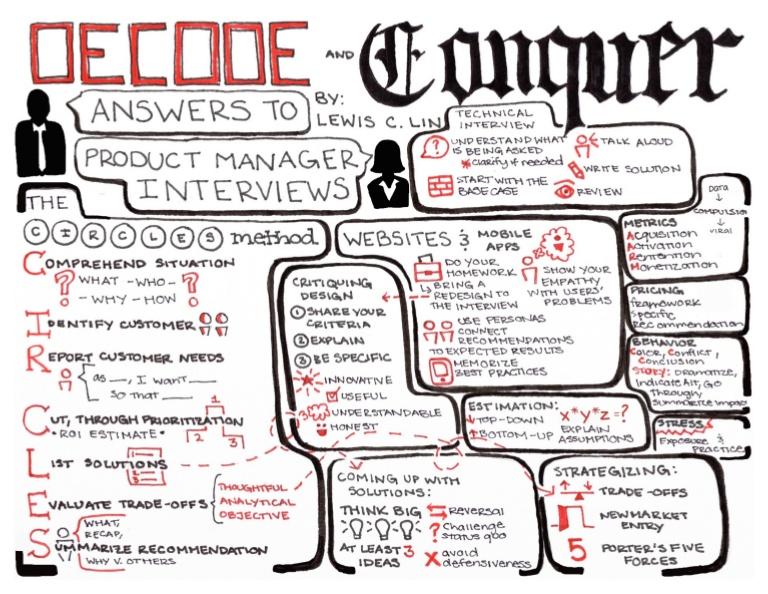 DECODE AND Conquer
ANSWERS TO
PRODUCT MANAGER
INTERVIEWS
BY:
LEWIS C. LIN
TECHNICAL
INTERVIEW
UNDERSTAND WHAT
IS BEING ASKED
*clarify if needed
START WITH THE
BASE CASE
TALK ALOUD
WRITE SOLUTION
REVIEW
THE
CIRCLES method
COMPREHEND SITUATION
? WHAT - WHO - ?
- WHY - HOW
IDENTIFY CUSTOMER
REPORT CUSTOMER NEEDS
as __, I want __
so that __
CUT, THROUGH PRIORITIZATION
• ROI ESTIMATE •
1
2
3
LIST SOLUTIONS
EVALUATE TRADE-OFFS
THOUGHTFUL
ANALYTICAL
OBJECTIVE
WHAT,
RECAP,
SUMMARIZE RECOMMENDATION
WHY V. OTHERS
WEBSITES & MOBILE
APPS
DO YOUR
HOMEWORK
BRING A
REDESIGN TO
THE INTERVIEW
SHOW YOUR
EMPATHY
WITH USERS'
PROBLEMS
USE PERSONAS
CONNECT
RECOMMENDATIONS
TO EXPECTED RESULTS
MEMORIZE
BEST PRACTICES
CRITIQUING
DESIGN
① SHARE YOUR
CRITERIA
② EXPLAIN
③ BE SPECIFIC
INNOVATIVE
USEFUL
UNDERSTANDABLE
HONEST
ESTIMATION:
TOP-DOWN
BOTTOM-UP
x*y*z=?
EXPLAIN
ASSUMPTIONS
DATA
COMPULSION
VIRAL
METRICS
Acquisition
Activation
Retention
Monetization
PRICING
framework
specific
recommendation
BEHAVIOR
Color, Conflict,
Conclusion
STORY: Dramatize,
Indicate Alt, Go
Through,
Summarize Impact
STRESS
Exposure &
Practice
COMING UP WITH
SOLUTIONS:
THINK BIG
AT LEAST 3
IDEAS
Reversal
? Challenge
status quo
X avoid
defensiveness
STRATEGIZING:
TRADE-OFFS
NEW MARKET
ENTRY
5 PORTER'S FIVE
FORCES